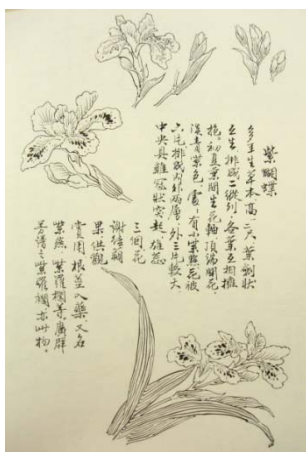 紫蝴蝶
多年生草本高一二尺葉劍狀
互生排成二縱列各葉互相擁
抱初夏葉間生花軸頂端開花
淡青紫色瓣有小紫點花被
六片排成内外兩層外三片較大
中央具雞冠狀突起雄蕊
三個花
謝結蒴
果供觀
賞用根莖入藥又名
紫燕紫羅欄等廣群
芳譜之紫羅欄亦此物